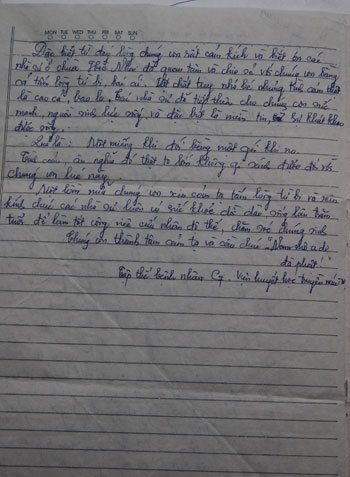 MON TUE WED THU FRI SAT SUN
Đặc biệt từ đáy lòng chúng con rất cảm kích và biết ơn các
nhà sư ở chùa đã quan tâm và chia sẻ với chúng con bằng
cả tấm lòng từ bi, bác ái. Vật chất tuy nhỏ bé nhưng tình cảm thật
là cao cả, bao la. Các nhà sư đã tiếp thêm cho chúng con sức
mạnh, nguồn sinh lực sống và đặc biệt là niềm tin, Sự khát khao
được sống.
Một miếng khi đói bằng một gói khi no.
ân nghĩa đó thật to lớn không gì sánh được đối với
chúng con lúc này.
Một lần nữa chúng con xin cảm tạ tấm lòng từ bi và xin
kính chúc các nhà sư luôn có sức khoẻ dồi dào sống lâu trăm
tuổi để làm tốt công việc của nhà, chăm sóc chúng sinh
Chúng con thành tâm cảm tạ và cầu chúc "Nam mô a di
đà phật"
Tập thể bệnh nhân C7. Viện huyết học truyền máu TW